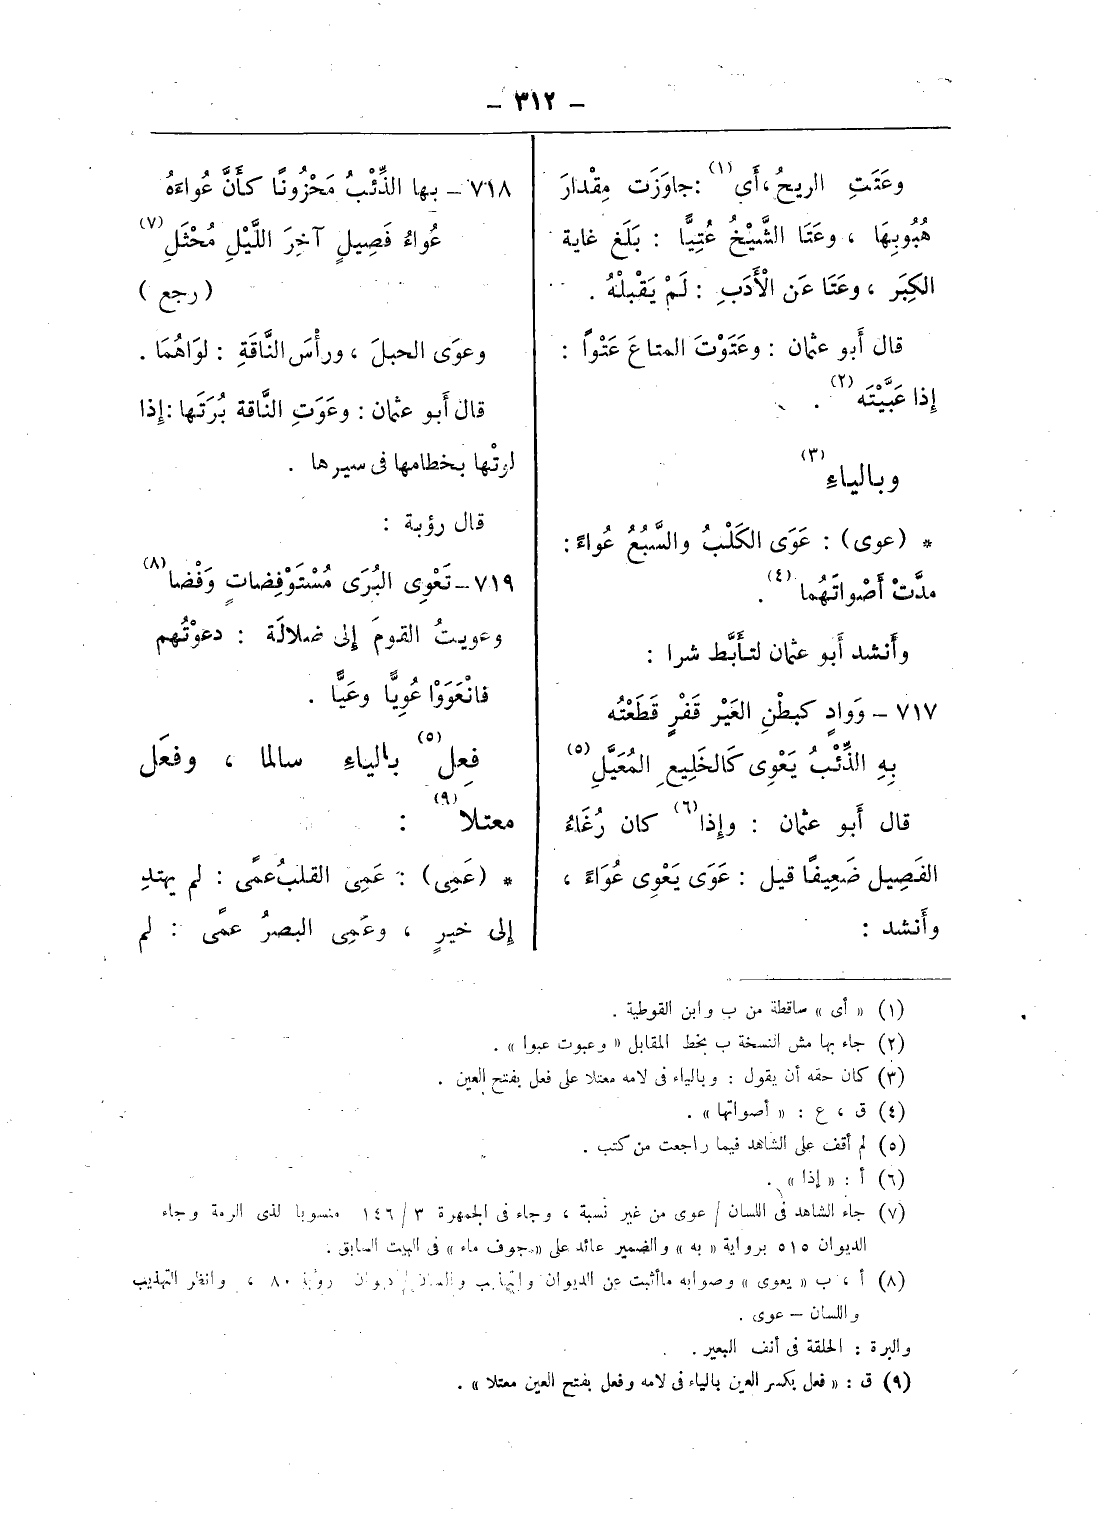 – ٣١٢ –
وعَتَتِ الريحُ، أَى (١) : جاوَزَت مِقْدارَ
هُبُوبِهَا ، وعَتَا الشَّيْخُ عُتِيًّا : بَلَغ غاية
الكِبَر ، وعَتَا عَن الْأَدَبِ : لَمْ يَقْبلْهُ .
قال أَبو عثمان : وعَتَوْتَ المتاعَ عَتْواً :
إِذا عَبَّيْتَه (٢) .
وبالياءِ (٣)
* (عوى) : عَوَى الكَلْبُ والسَّبُعُ عُواءً :
مدَّتْ أَصْواتَهُما (٤) .
وأَنشد أَبو عثمان لتأَبَّط شرا :
٧١٧ – وَوادٍ كبطْنِ العَيْر قَفْرٍ قَطَعْتُه
بِهِ الذِّئْبُ يَعْوِى كَالخَلِيعِ المُعَيَّلِ (٥)
قال أَبو عثمان : وإِذا (٦) كان رُغَاءُ
الفَصِيل ضَعِيفًا قيل : عَوَى يَعْوِى عُوَاءً ،
وأَنشد :
٧١٨ – بها الذِّئْبُ مَحْزُونًا كأَنَّ عُواءَهُ
عُواءُ فَصِيلٍ آخِرَ اللَّيْلِ مُحْثَلِ (٧)
( رجع )
وعوَى الحبلَ ، ورأْسَ النَّاقَةِ : لوَاهُمَا .
قال أَبو عثمان : وعَوَتِ النَّاقة بُرَتَها : إِذا
لوتْها بخطامها فى سيرها .
قال رؤبة :
٧١٩ – تَعْوِى البُرَى مُسْتَوْفِضاتٍ وَفْضا (٨)
وعويتُ القومَ إِلى ضلالَة : دعوْتُهم
فانْعَوَوْا عُوِيًّا وعَيًّا .
فعِل (٥) بالياءِ سالما ، وفعَل
معتلا (٩) :
* (عَمِى) : عَمِى القلبُ عمًى : لم يهتدِ
إِلى خيرٍ ، وعَمِى البصرُ عمًى : لم
(١) « أى » ساقطة من ب وابن القوطية .
(٢) جاء بها مش النسخة ب بخط المقابل « وعبوت عبوا » .
(٣) كان حقه أن يقول : وبالياء فى لامه معتلا على فعل بفتح العين .
(٤) ق ، ع : « أصواتها » .
(٥) لم أقف على الشاهد فيما راجعت من كتب .
(٦) أ : « إذا » .
(٧) جاء الشاهد فى اللسان / عوى من غير نسبة ، وجاء فى الجمهرة ٣ / ١٤٦ منسوبا لذى الرمة وجاء
الديوان ٥١٥ برواية « به » والضمير عائد على « جوف ماء » فى البيت السابق .
(٨) أ ، ب « يعوى » وصوابه ماأثبت عن الديوان والتهذيب واللسان / ديوان رؤبة ٨٠ ، وانظر التهذيب
واللسان – عوى .
والبرة : الحلقة فى أنف البعير .
(٩) ق : « فعل بكسر العين بالياء فى لامه وفعل بفتح العين معتلا » .